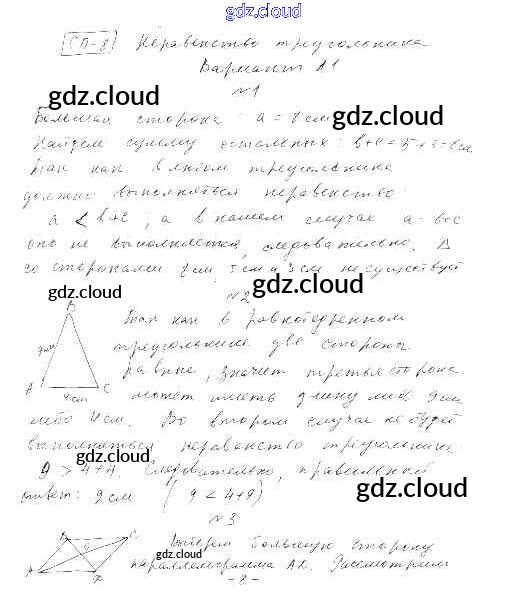 gdz.cloud
СП-8 Неравенство треугольника
Вариант А1
gdz.cloud
№1
Большая сторона: a = 8 см
gdz.cloud
Найдем сумму остальных: b+c = 5+3=8см
Так как в любом треугольнике
должно выполняться неравенство:
gdz.cloud
a < b+c, а в нашем случае a = b+c
оно не выполняется, следовательно, Δ
gdz.cloud
со сторонами 8 см, 5 см и 3 см не существует
gdz.cloud
№2
B
Так как в равнобедренном
9см
треугольнике две стороны
равны, значит третья сторона
A C
4см
может иметь длину либо 9 см
gdz.cloud
либо 4 см. Во втором случае не будет
выполняться неравенство треугольника
gdz.cloud
9 > 4+4. Следовательно, правильный
gdz.cloud
ответ: 9 см (9 < 4+9)
gdz.cloud
№3
B C
Выберем большую сторону
gdz.cloud
параллелограмма AD. Рассмотрим
A D
- 8 -